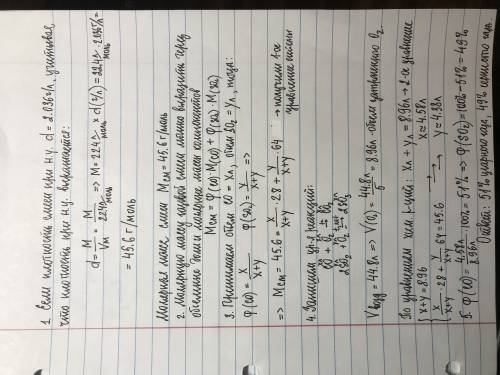 1. Если плотность смеси при н.у. d = 2.036 г/л, учитывая,
что плотность при н.у. выражается:
d = M/Vм = M/22.4 л/моль => M = 22.4 л/моль · d (г/л) = 22.4 л/моль · 2.036 г/л =
= 45.6 г/моль
Молярная масс. смеси Mсм = 45.6 г/моль
2. Молярную массу газовой смеси можно выразить через
объемные доли и молярные массы компонентов
Mсм = φ(CO)·M(CO) + φ(SO₂)·M(SO₂)
3. Пусть объем CO = xл, объем SO₂ = yл, тогда:
φ(CO) = x/x+y φ(SO₂) = y/x+y =>
=> Mсм = 45.6 = x/x+y · 28 + y/x+y · 64 → получим 1-ое
уравнение системы
4. Запишем ур-я реакций:
CO + O₂ = CO₂
2SO₂ + O₂ = 2SO₃
Vвозд = 44.8л => V(O₂) = 44.8л/5 = 8.96л объем затраченного O₂
По уравнениям хим р-ций: xл + yл = 8.96л → 2-ое уравнение
{ x+y = 8.96 x ≈ 4.58л
{ x/x+y · 28 + y/x+y 64 = 45.6 → y ≈ 4.38л
5. φ(CO) = 4.58л/8.96л · 100% = 51% => φ(SO₂) = 100% - 51% = 49%
Ответ: 51% угарного газа, 49% сернистого газа.